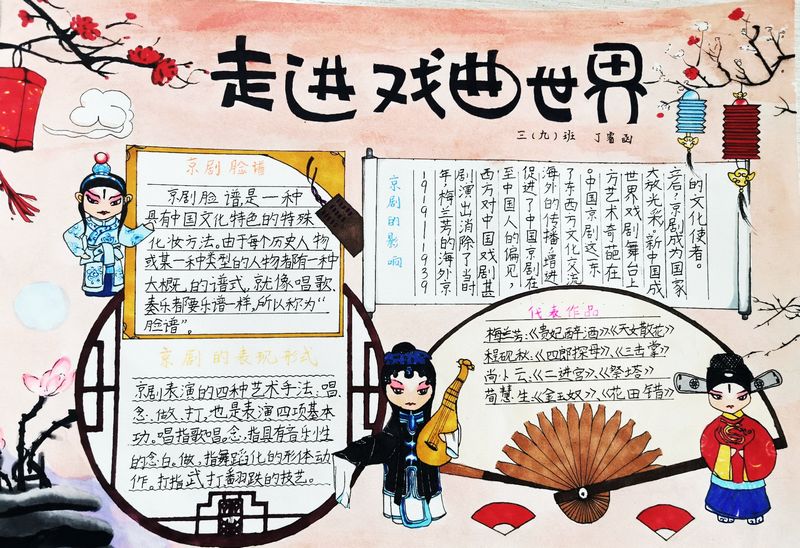 走进戏曲世界
三(九)班 丁睿函
京剧脸谱
京剧脸谱是一种
具有中国文化特色的特殊
化妆方法。由于每个历史人物
或某一种类型的人物都有一种
大概的谱式,就像唱歌、
奏乐都要乐谱一样,所以称为“
脸谱”。
京剧的表现形式
京剧表演的四种艺术手法:唱、
念、做、打,也是表演四项基本
功。唱指歌唱。念,指具有音乐性
的念白。做,指舞蹈化的形体动
作。打指武打翻跌的技艺。
京剧的影响
1919—1939
年,梅兰芳的海外京
剧演出消除了当时
西方对中国戏剧甚
至中国人的偏见,
促进了中国京剧在
海外的传播,增进
了东西方文化交流
。中国京剧这一东
方艺术奇葩在
世界戏剧舞台上
大放光彩。新中国成
立后,京剧成为国家
的文化使者。
代表作品
梅兰芳:《贵妃醉酒》《天女散花》
程砚秋:《四郎探母》《三击掌》
尚小云:《二进宫》《祭塔》
荀慧生:《金玉奴》《花田错》